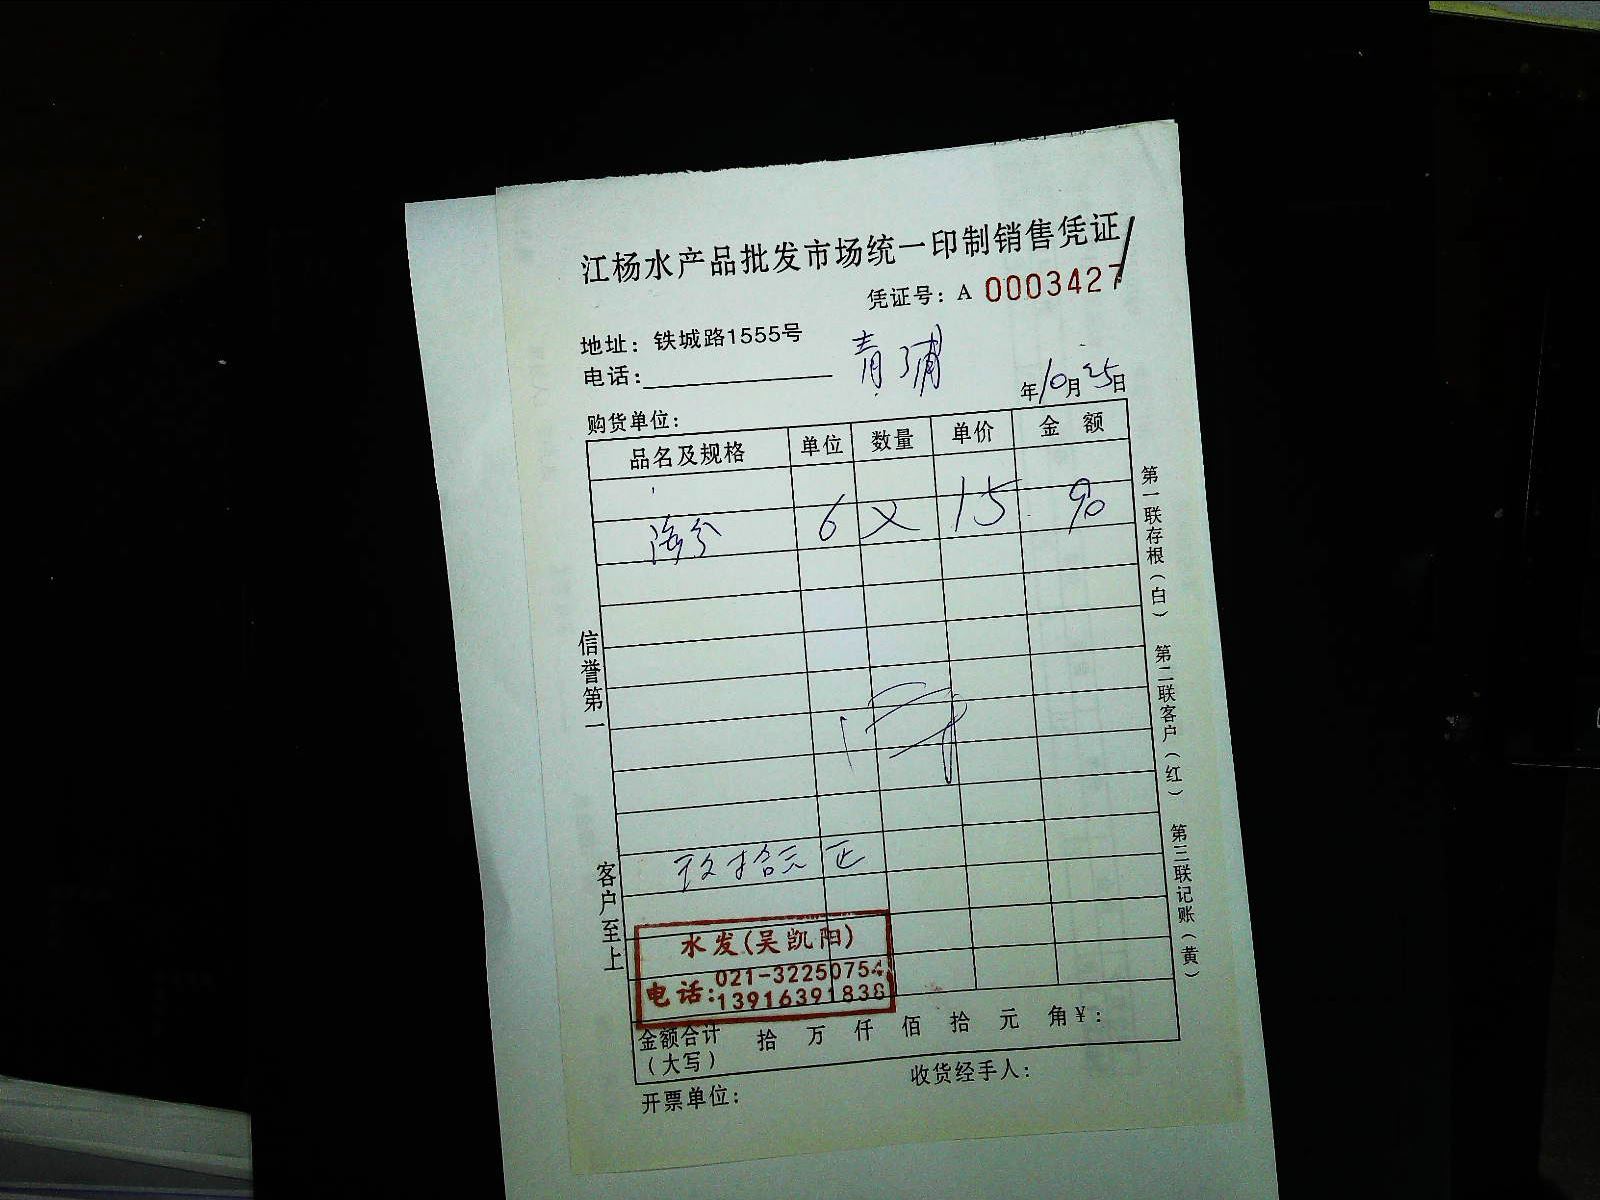 江杨水产品批发市场统一印制销售凭证
凭证号：A 0003427
地址：铁城路1555号
电话：
青浦
年10月25日
购货单位：
品名及规格 单位 数量 单价 金 额
6 × 15 90
玖拾元正
信誉第一
客户至上
第一联存根（白） 第二联客户（红） 第三联记账（黄）
水发(吴凯阳)
电话：021-32250754
13916391838
金额合计 拾 万 仟 佰 拾 元 角¥：
（大写）
开票单位： 收货经手人：